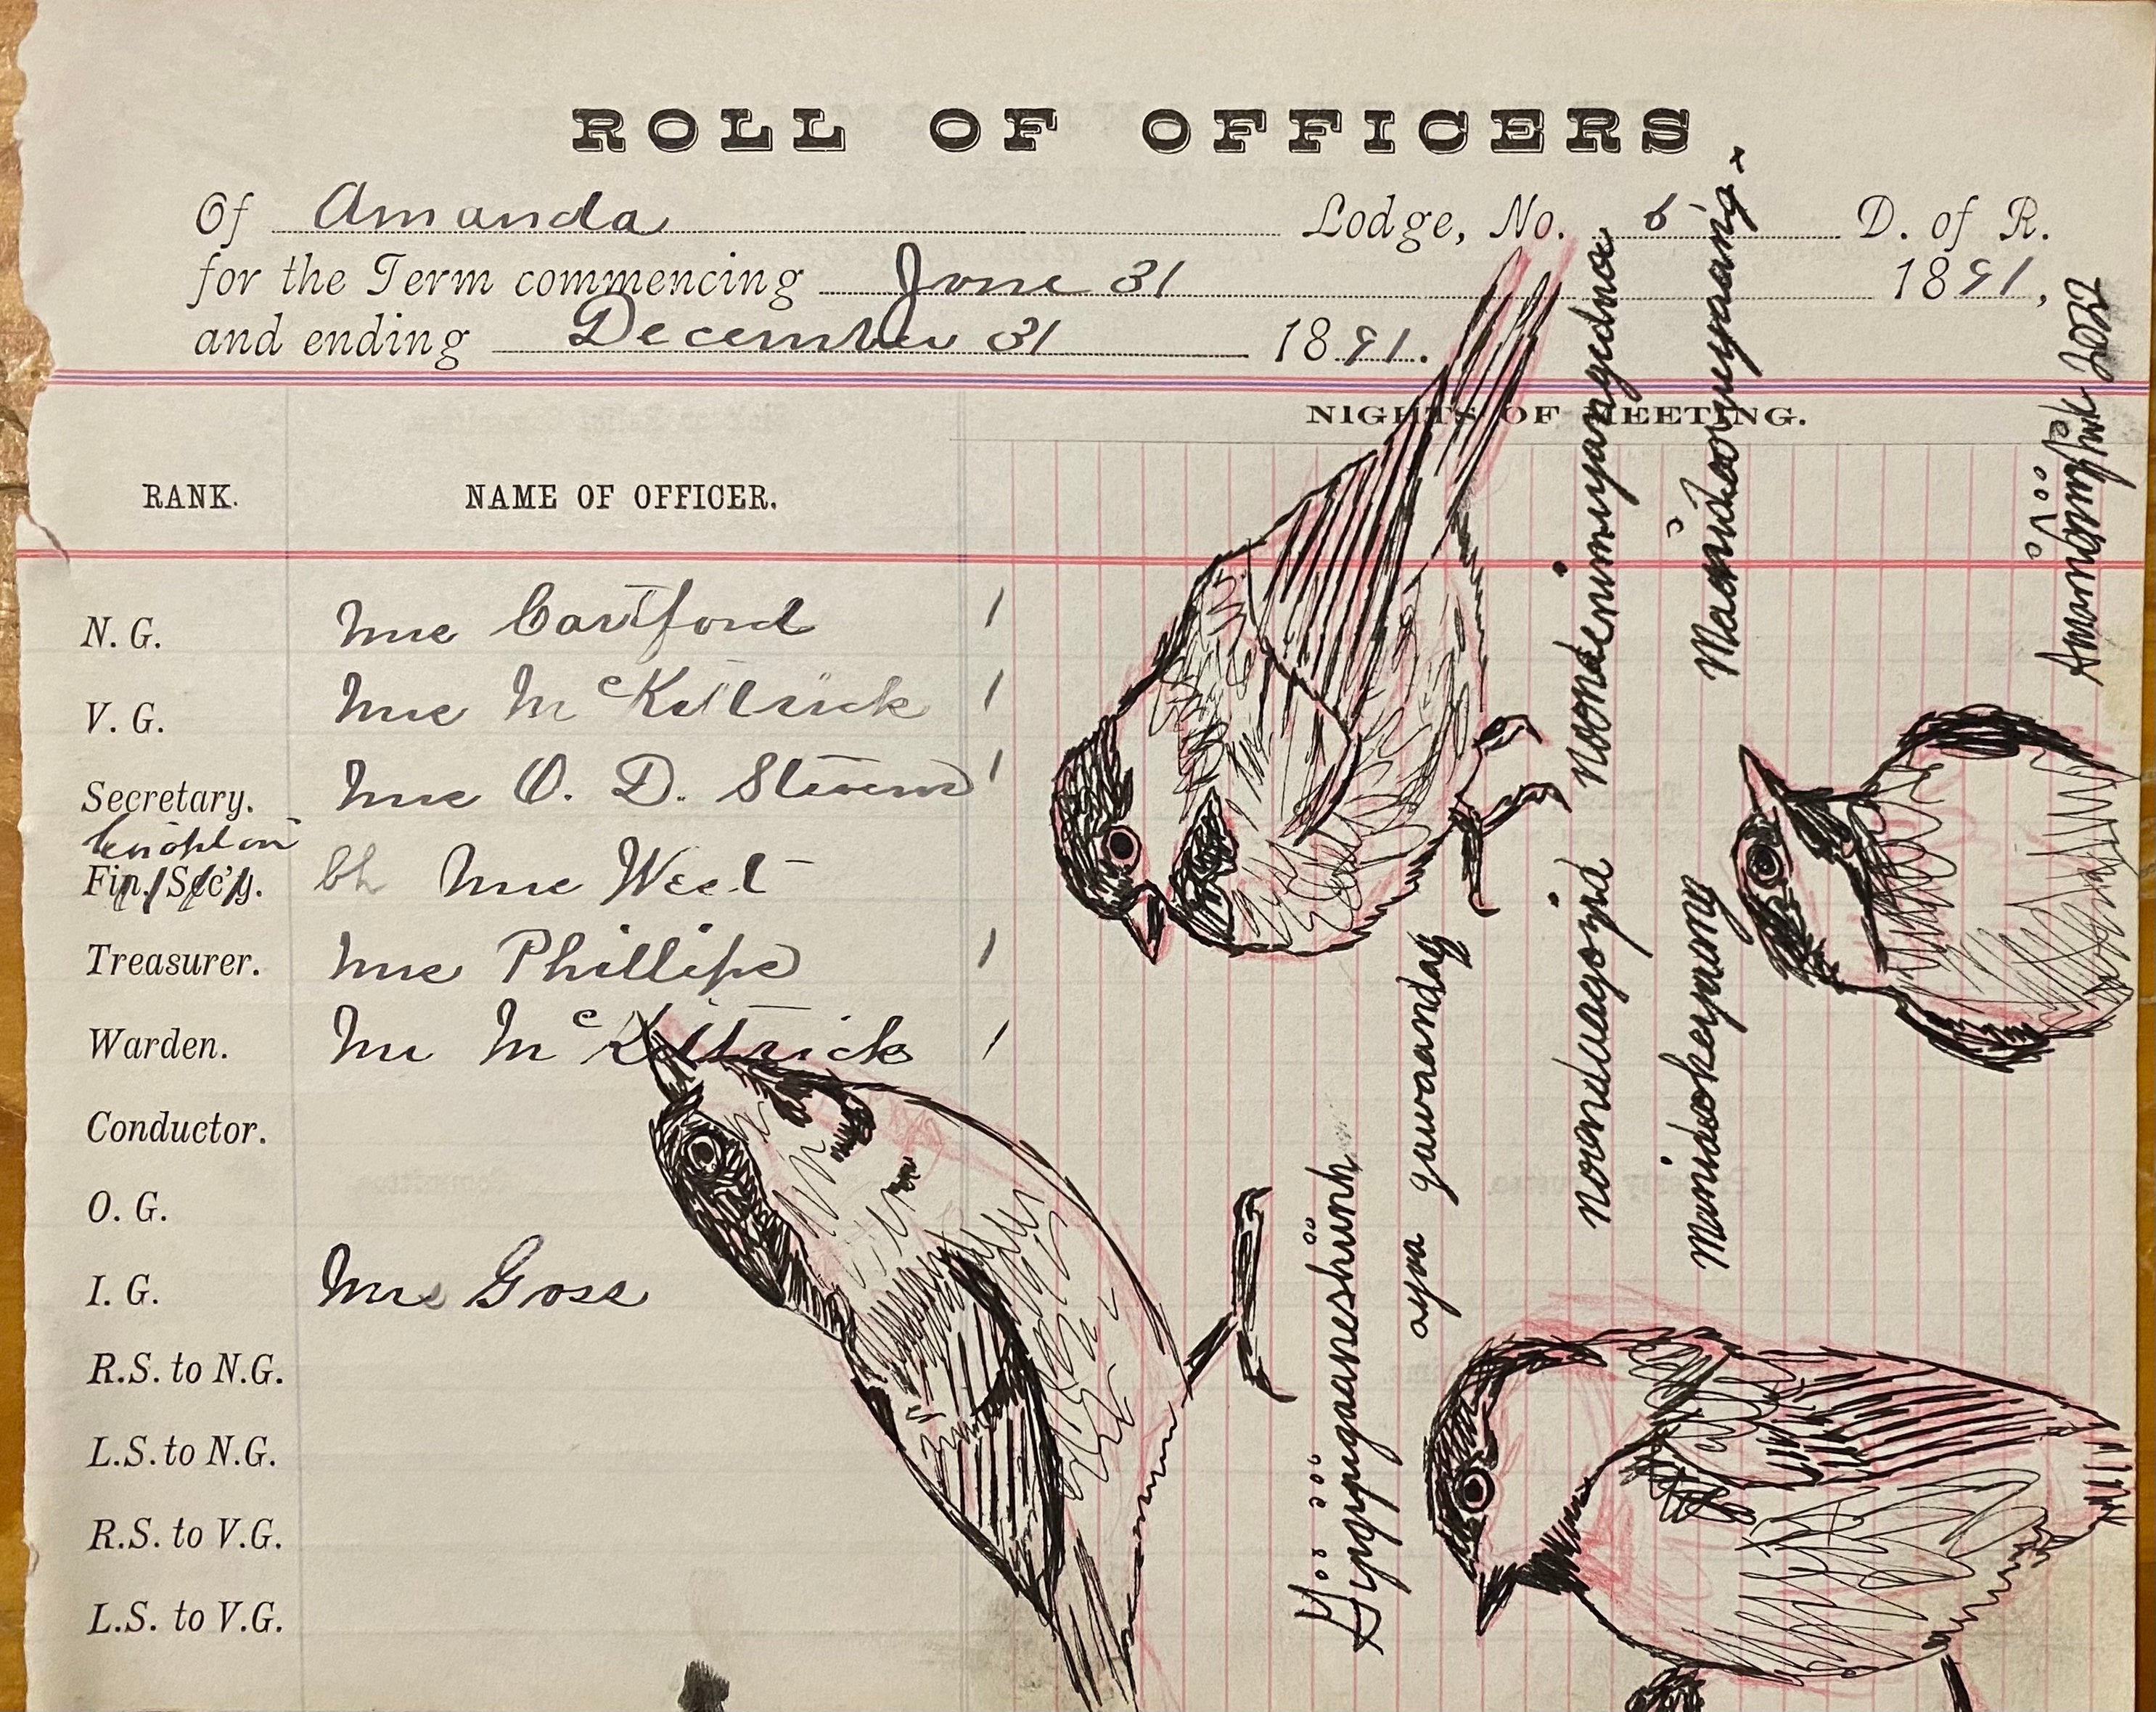 ROLL OF OFFICERS
Of Amanda Lodge, No. 6 D. of R.
for the Term commencing June 31 1891,
and ending December 31 1891.
NIGHTS OF MEETING.
RANK. NAME OF OFFICER.
N. G. Mrs Cartford /
V. G. Mrs McKittrick /
Secretary. Mrs O. D. Stevens /
Fin. Sec'y. Mrs West
Treasurer. Mrs Phillips /
Warden. Mrs McKittrick /
Conductor.
O. G.
I. G. Mrs Goss
R.S. to N.G.
L.S. to N.G.
R.S. to V.G.
L.S. to V.G.
ayaa gawaandag
noondaagozid noondenimiyangidwa
Manidookeyaang Maanidooweyaang.
2022